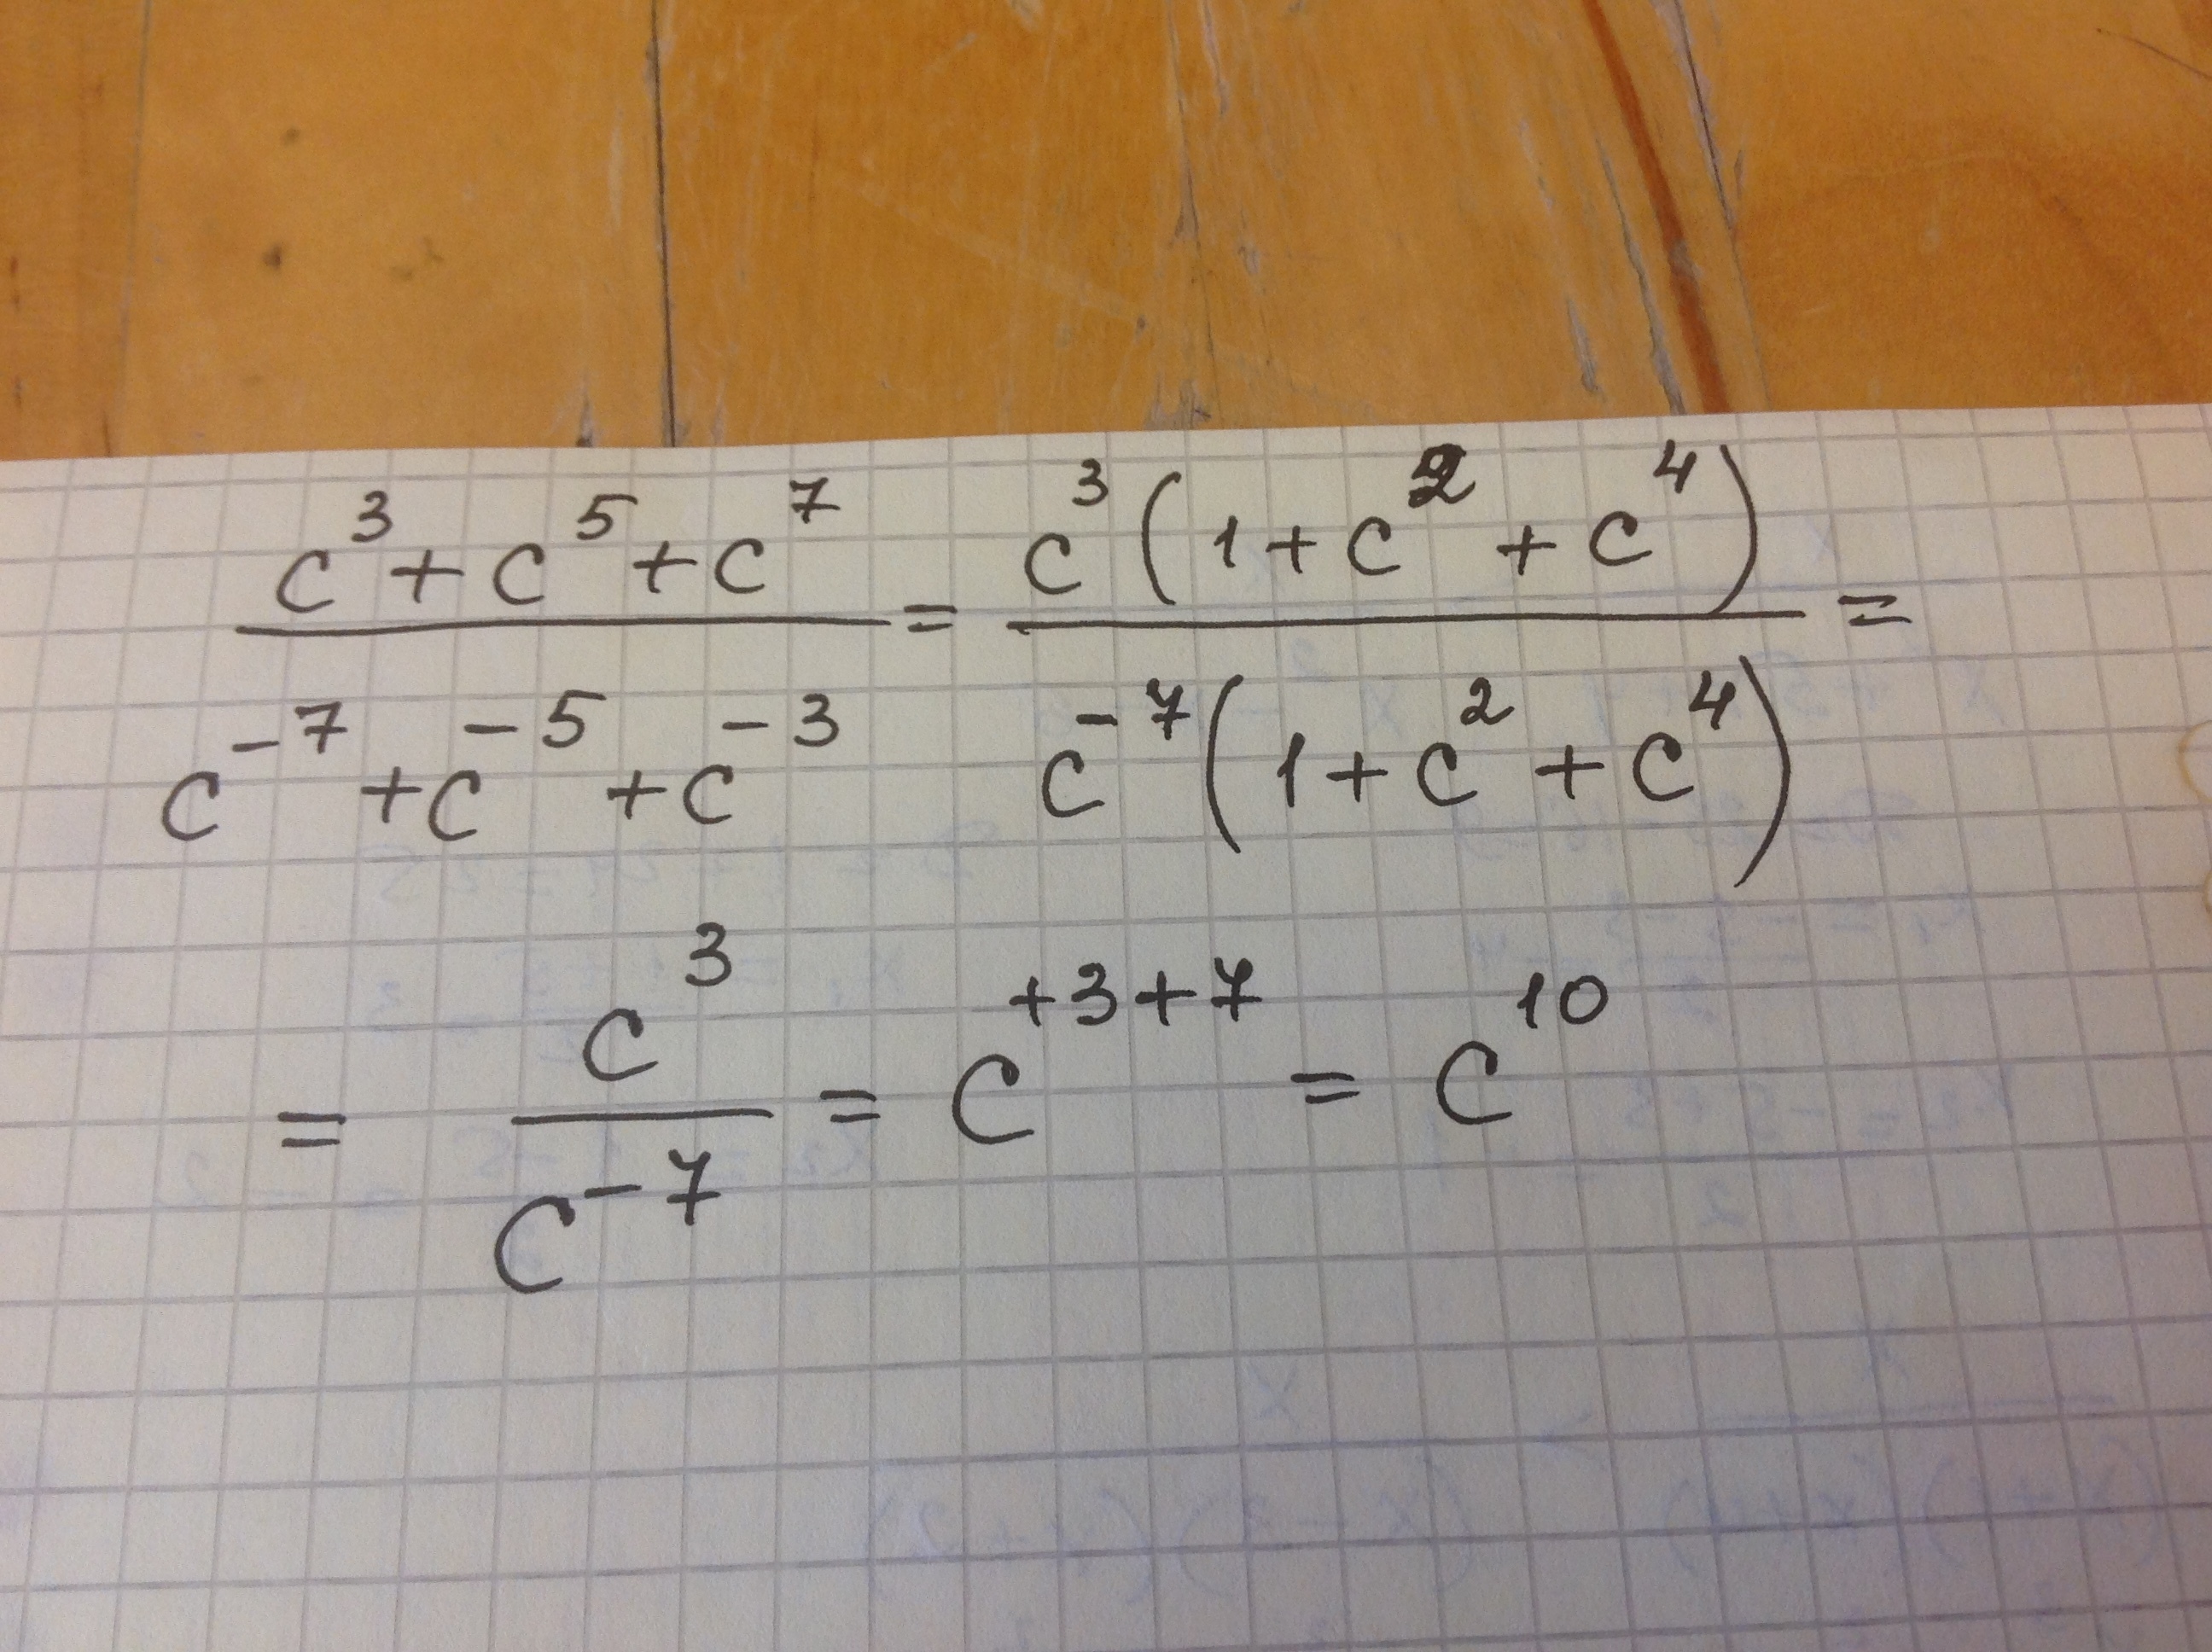 (c³ + c⁵ + c⁷)/(c⁻⁷ + c⁻⁵ + c⁻³) = c³(1 + c² + c⁴)/c⁻⁷(1 + c² + c⁴) =
= c³/c⁻⁷ = c⁺³⁺⁷ = c¹⁰